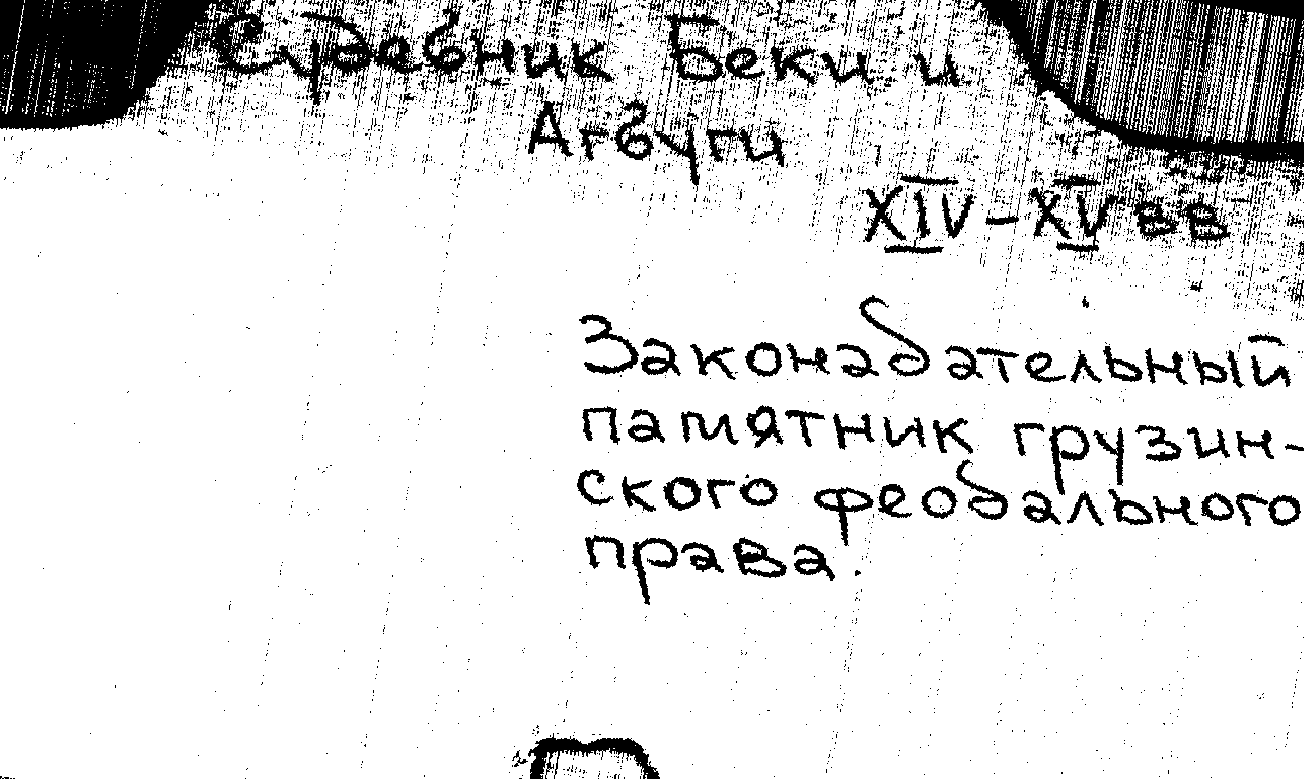 Судебник Беки и
Агбуги
XIV-XV вв
Законадательный
памятник грузин-
ского феодального
права.